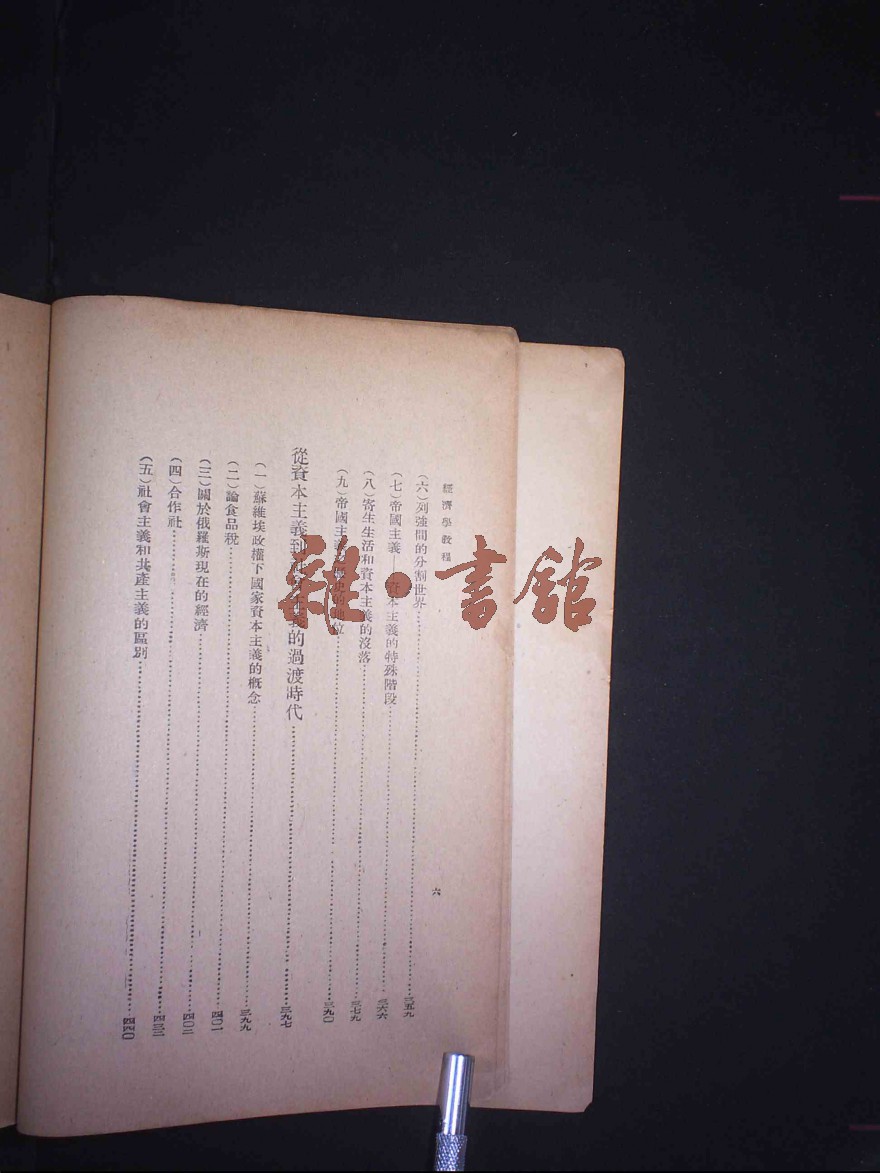 經濟學教程
六
(六)列強間的分割世界…………三五九
(七)帝國主義——資本主義的特殊階段…………三六六
(八)寄生生活和資本主義的沒落…………三七九
(九)帝國主義 的地位…………三九〇
從資本主義到社會主義的過渡時代…………三九七
(一)蘇維埃政權下國家資本主義的概念…………三九九
(二)論食品稅…………四〇一
(三)關於俄羅斯現在的經濟…………四〇二
(四)合作社…………
(五)社會主義和共產主義的區別…………
雜·書館